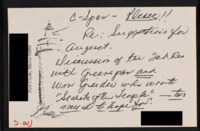 C-Span - Please!!
Re: Suggestions for
August.
Discussion of tax
with Greenspan and
Wm Greider who wrote
"Secrets of the Temple" - too
much to hope for?